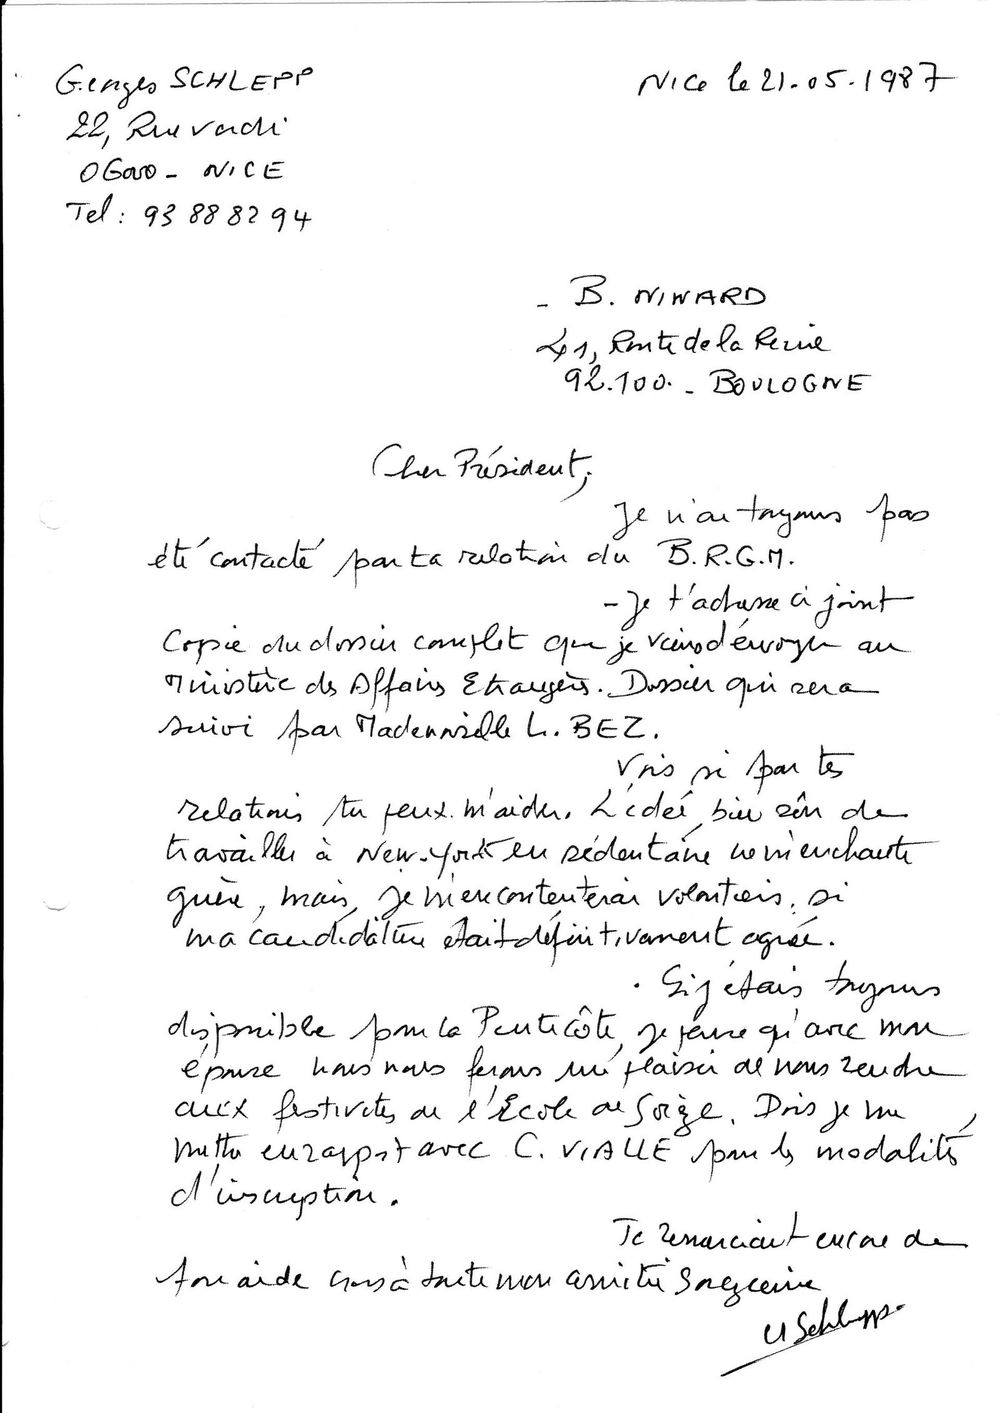 Georges SCHLEPP
22, Rue Verdi
06000 - NICE
Tel : 93 88 82 94
Nice le 21.05.1987
- B. NINARD
41, Route de la Reine
92.100. - BOULOGNE
Cher Président,
Je n'ai toujours pas
été contacté par ta relation du B.R.G.M.
- Je t'adresse ci joint
Copie du dossier complet que je viens d'envoyer au
Ministère des Affaires Etrangères. Dossier qui sera
suivi par Mademoiselle L. BEZ.
Vois si par tes
relations tu peux m'aider. L'idée, bien sûr de
travailler à New-York en sédentaire ne m'enchante
guère, mais, je m'en contenterai volontiers, si
ma candidature était définitivement agréée.
. Si j'étais toujours
disponible pour la Pentecôte, je pense qu'avec mon
épouse nous nous ferons un plaisir de nous rendre
aux festivités de l'Ecole de Sorèze. Dois je me
mettre en rapport avec C. VIALLE pour les modalités
d'inscription.
Te remerciant encore de
ton aide crois à toute mon amitié Sorézienne
Schlepp